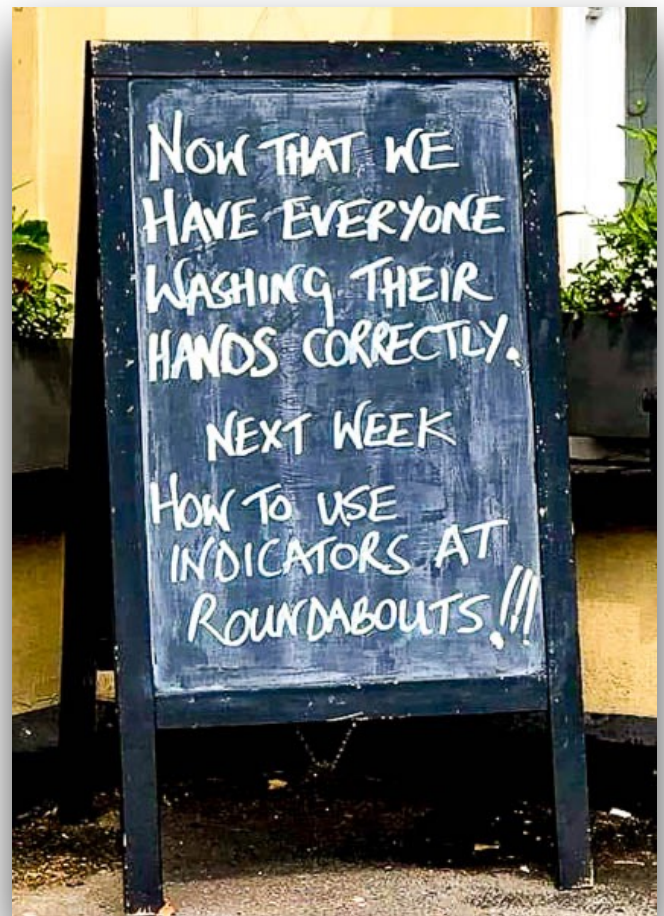 NOW THAT WE
HAVE EVERYONE
WASHING THEIR
HANDS CORRECTLY.
NEXT WEEK
HOW TO USE
INDICATORS AT
ROUNDABOUTS.!!!